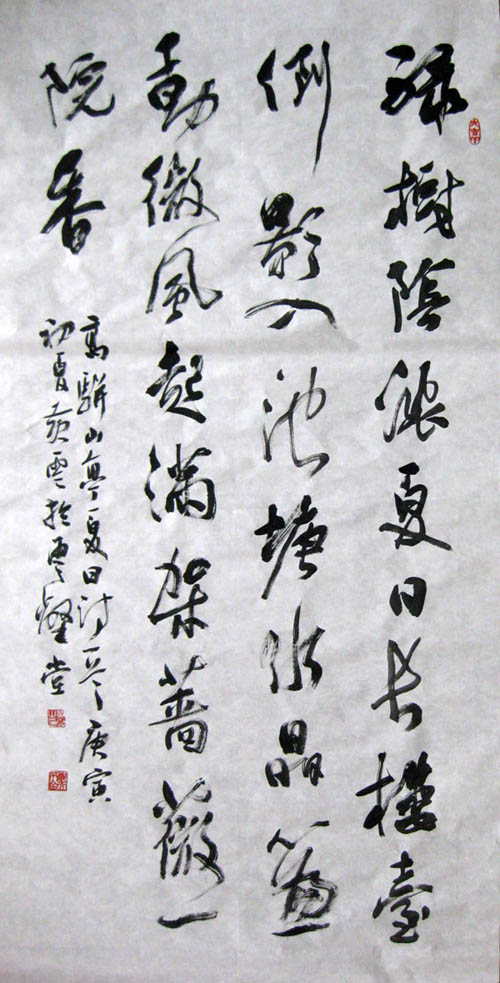 綠樹陰濃夏日長樓臺
倒影入池塘水晶簾
動微風起滿架薔薇一
院香
高駢山亭夏日詩一首庚寅
初夏雲於雲堂